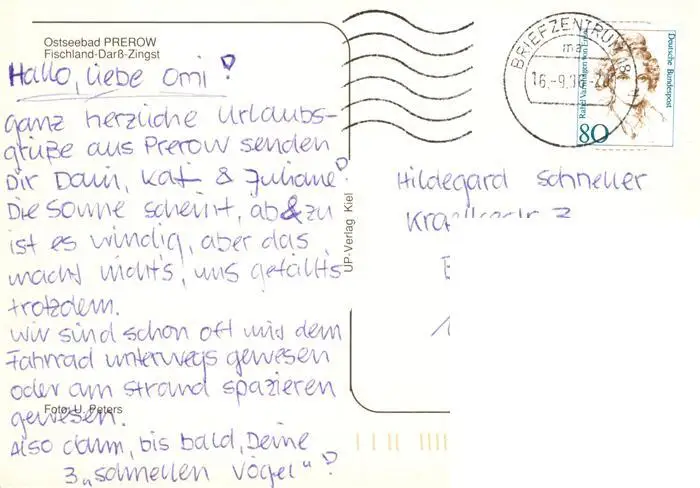 Ostseebad PREROW
Fischland-Darß-Zingst
Hallo, liebe Omi!
ganz herzliche Urlaubs-
grüße aus Prerow senden
Dir Dani, Kat & Juliane!
Die Sonne scheint, ab & zu
ist es windig, aber das
macht nichts, uns gefällt's
trotzdem.
Wir sind schon oft mit dem
Fahrrad unterwegs gewesen
oder am Strand spazieren
gewesen.
Foto: U. Peters
Also dann, bis bald, Deine
3 „schnellen Vögel"!
UP-Verlag Kiel
BRIEFZENTRUM 18
ma
16.-9.
Rahel Varnhagen von Ense
Deutsche Bundespost
80
Hildegard Schneller